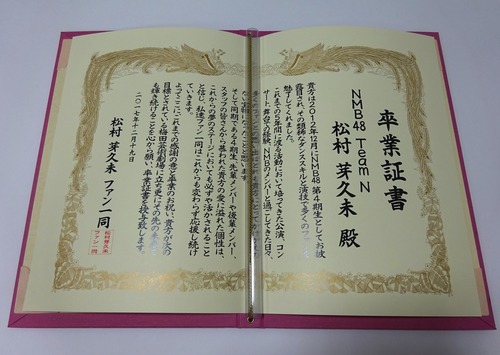 卒業証書
NMB48 Team N
松村 芽久未 殿
貴方は2012年12月にNMB48 第4期生としてお披
露目され、その類稀なダンススキルと演技で多くのファ
魅了してくれました。
これまでの5年間に渡る活動において培ってきた公演、コン
サート、舞台の経験、NMBのメンバーと過ごしてきた日々、
そして同期である4期生、先輩メンバーや後輩メンバー、
スタッフの皆さんから慕われた貴方の愛に溢れた個性は、
これからの夢のステージにおいても必ずや活かされること
と信じ、私達ファン一同はこれからも変わらず応援し続け
ていきます。
よってここに、これまでの感謝の意と卒業のお祝い、貴方が次の
目標とされている梅田芸術劇場に立ち更にその先の未来
も輝き続けることを心から願い、卒業証書を授与致します。
二〇一七年十二月十九日
松村 芽久未 ファン一同
松村芽久未
ファン一同